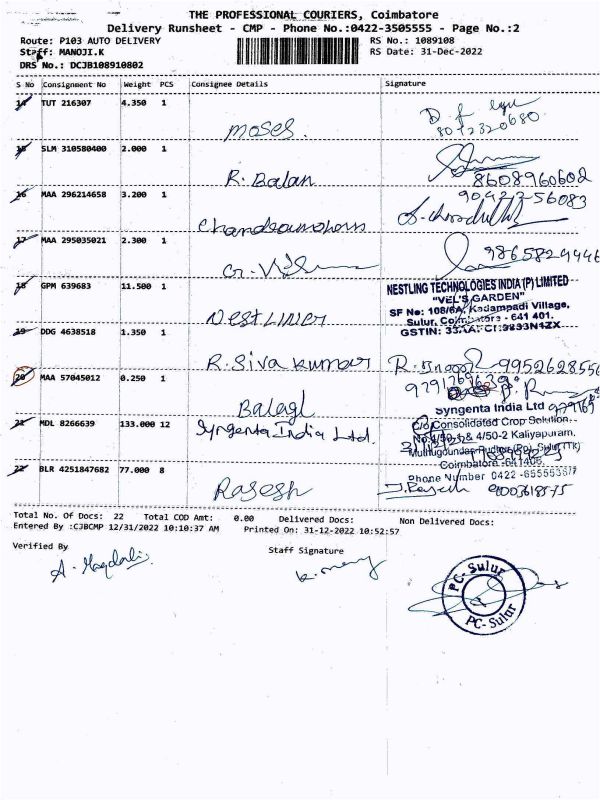 THE PROFESSIONAL COURIERS, Coimbatore
Delivery Runsheet - CMP - Phone No.:0422-3505555 - Page No.:2
Route: P103 AUTO DELIVERY RS No.: 1089108
Staff: MANOJI.K RS Date: 31-Dec-2022
DRS No.: DCJB108910802
S No Consignment No Weight PCS Consignee Details Signature
14 TUT 216307 4.350 1
Moses.
15 SLM 310580400 2.000 1
R. Balan 8608960602
16 MAA 296214658 3.200 1
Chandramohan
17 MAA 295035021 2.300 1
18 GPM 639683 11.500 1
NESTLING TECHNOLOGIES INDIA (P) LIMITED
"VEL'S GARDEN"
SF No: 108/6A, Kadampadi Village,
Sulur, Coimbatore - 641 401.
NESTLINER
19 DDG 4638518 1.350 1
R. Siva kumar
20 MAA 57045012 0.250 1
Balagl
Syngenta India Ltd
21 MDL 8266639 133.000 12
Syngenta India Ltd.
C/o Consolidated Crop Solution
No.4/50-1 & 4/50-2 Kaliyapuram,
Coimbatore -641406.
22 BLR 4251847682 77.000 8
Phone Number 0422
Rasesh
Total No. Of Docs: 22 Total COD Amt: 0.00 Delivered Docs: Non Delivered Docs:
Entered By :CJBCMP 12/31/2022 10:10:37 AM Printed On: 31-12-2022 10:52:57
Verified By Staff Signature
PC-Sulur
PC-Sulur